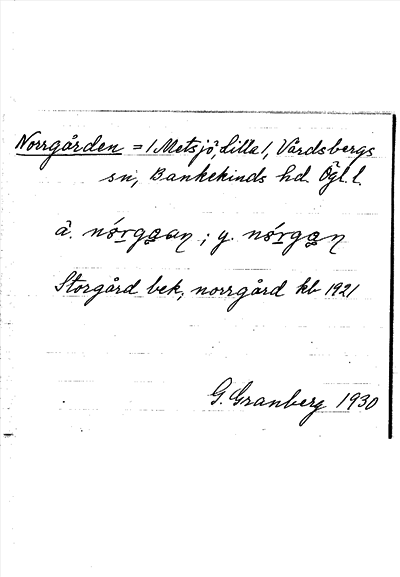 Norrgården = / Metsjö, Lilla /, Vårdsbergs
sn, Bankekinds hd. Ögl. l.
ä. ; y.
Storgård bek, norrgård kb 1921
G. Granberg 1930